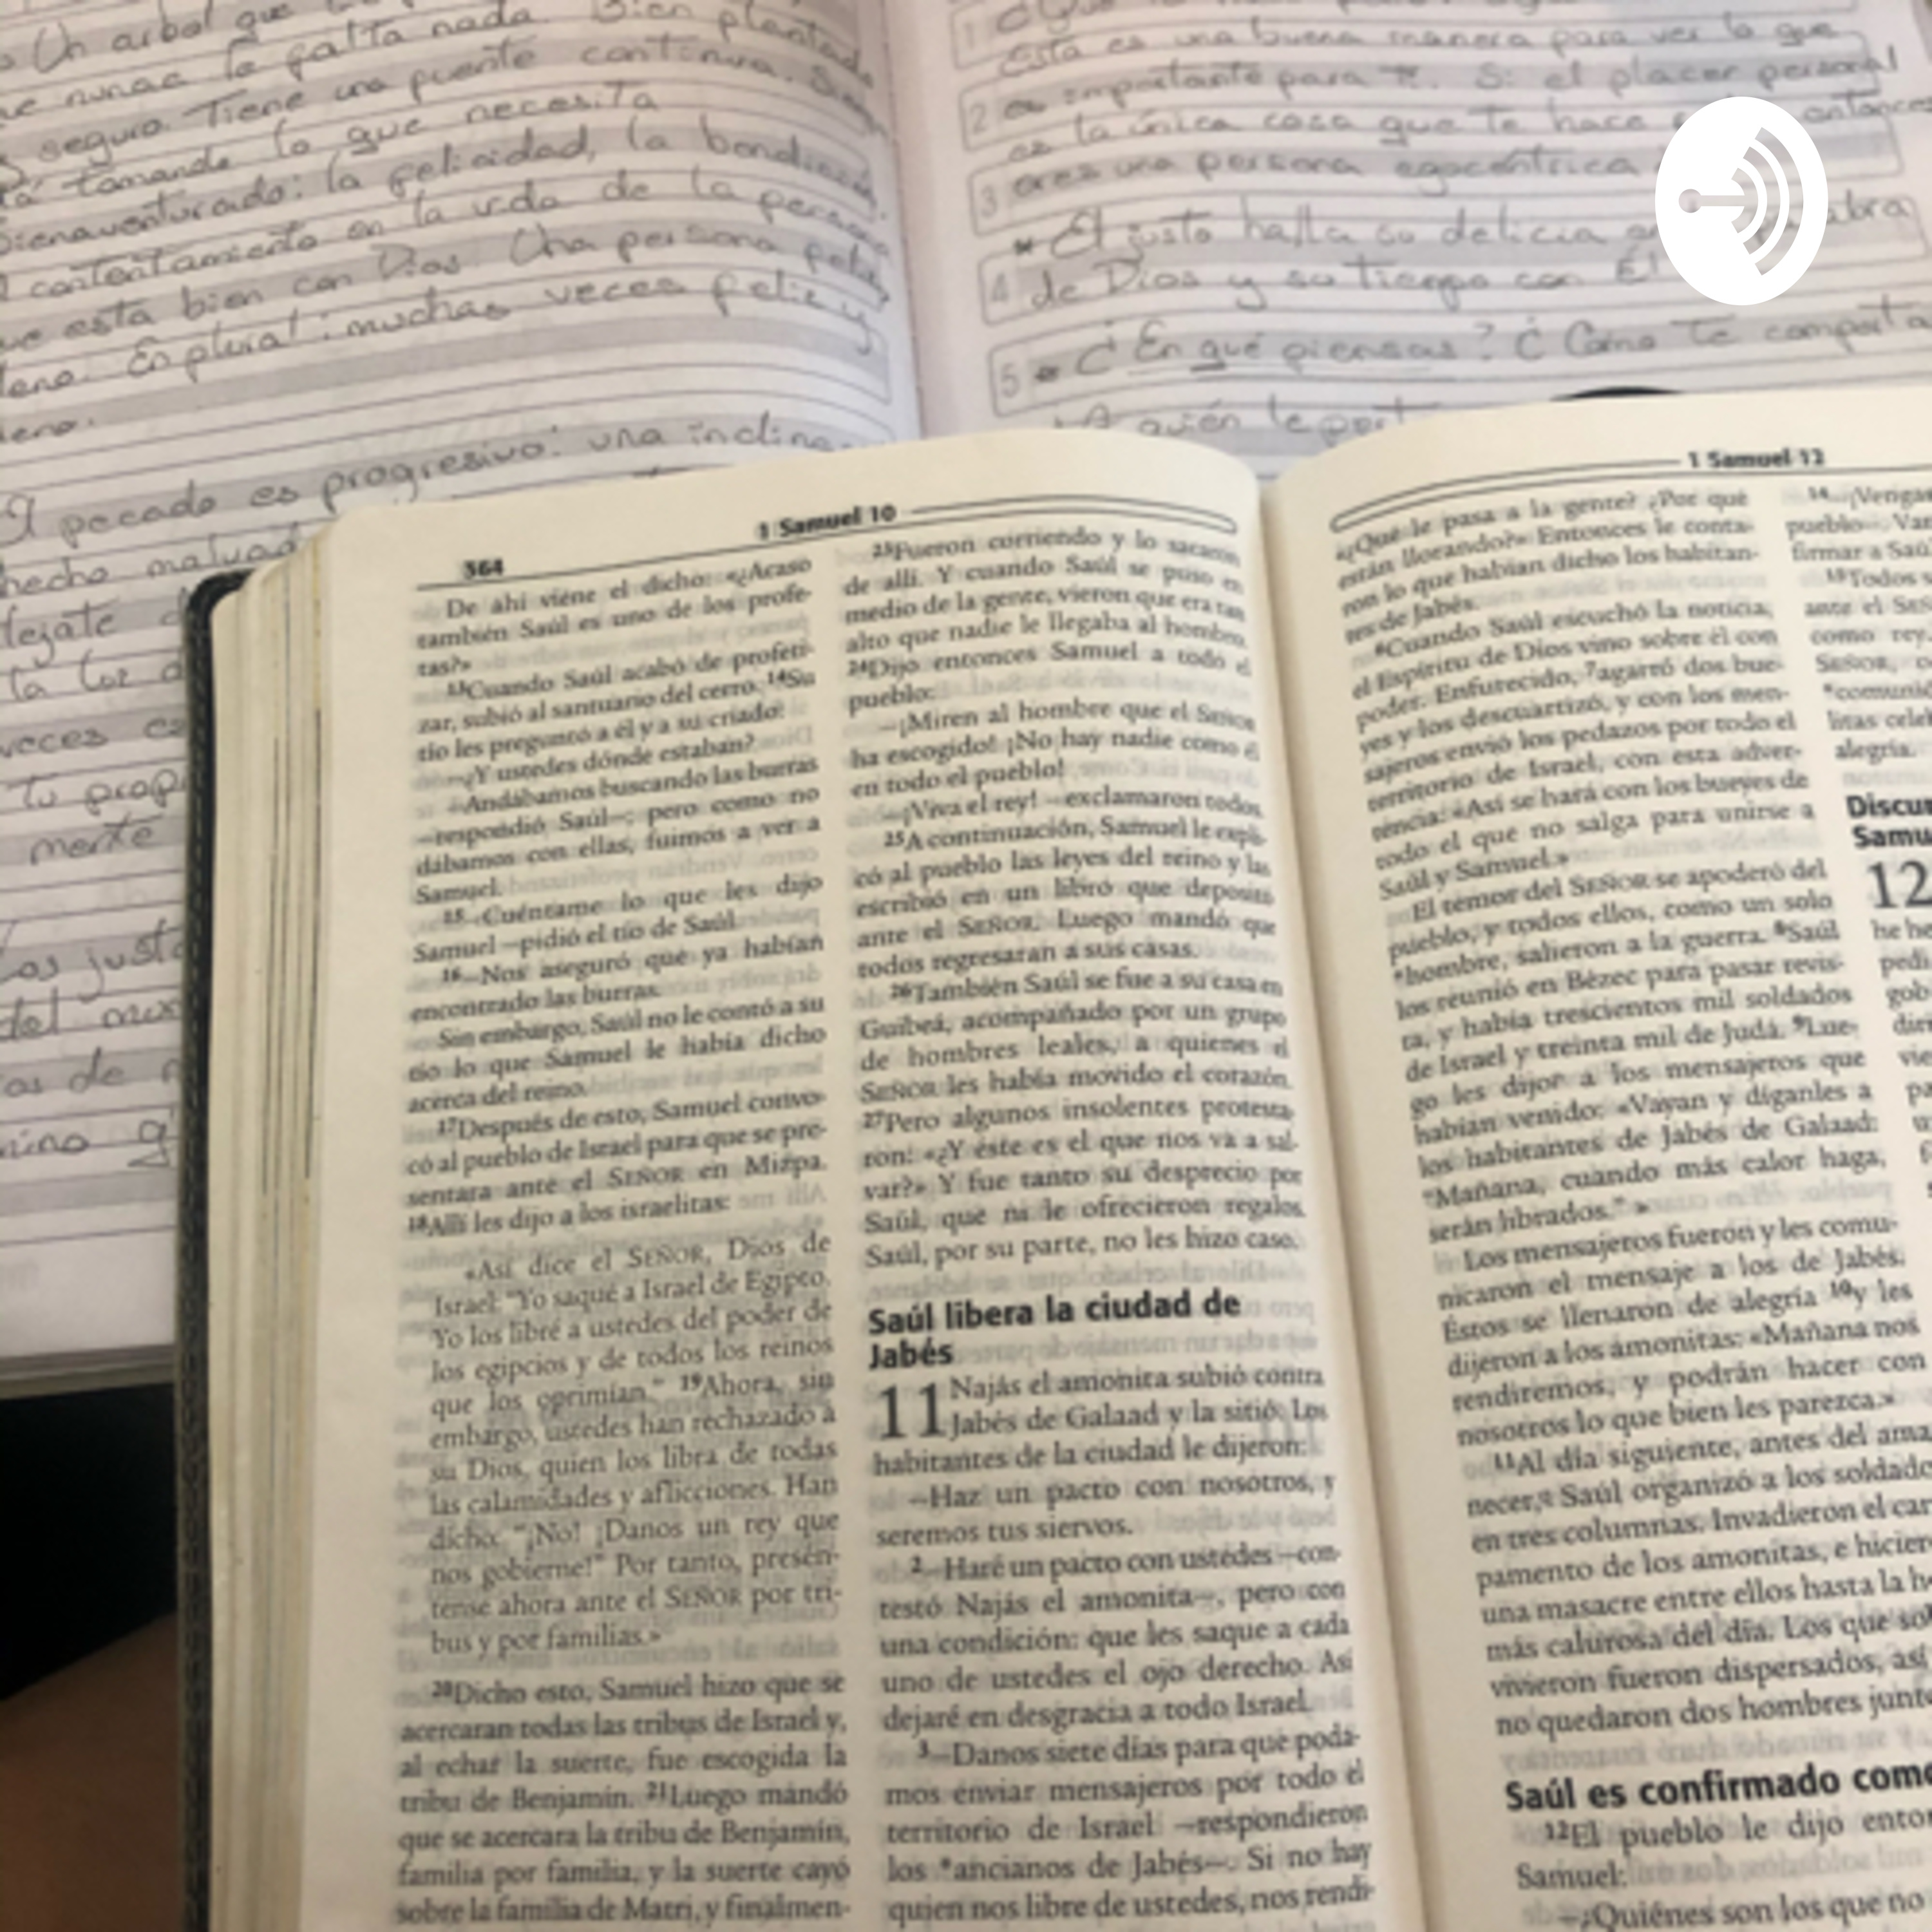 Un arbol que
nunca le falta nada. Bien plantado
seguro. Tiene una fuente continua.
tomando lo que necesita
Bienaventurado: la felicidad, la
contentamiento en la vida de la persona
que esta bien con Dios. Una persona feliz,
En plural: muchas veces feliz y
pecado es progresivo: una inclina-
hecho
la luz
veces
tu
mente
justo
del
de
1
Esta es una buena manera para ver lo que
2 es importante para ti. Si el placer personal
es la única cosa que te hace entonces
3 eres una persona egocéntrica
* El justo halla su delicia
4 de Dios y su tiempo con Él
5 ¿En qué piensas? ¿Cómo te comporta
A quién le
364
1 Samuel 10
De ahí viene el dicho: «¿Acaso
también Saúl es uno de los profe-
tas?»
13Cuando Saúl acabó de profeti-
zar, subió al santuario del cerro. 14Su
tío les preguntó a él y a su criado:
—¿Y ustedes dónde estaban?
—Andábamos buscando las burras
—respondió Saúl—; pero como no
dábamos con ellas, fuimos a ver a
Samuel.
15—Cuéntame lo que les dijo
Samuel —pidió el tío de Saúl.
16—Nos aseguró que ya habían
encontrado las burras.
Sin embargo, Saúl no le contó a su
tío lo que Samuel le había dicho
acerca del reino.
17Después de esto, Samuel convo-
có al pueblo de Israel para que se pre-
sentara ante el SEÑOR en Mizpa.
18Allí les dijo a los israelitas:
«Así dice el SEÑOR, Dios de
Israel: "Yo saqué a Israel de Egipto.
Yo los libré a ustedes del poder de
los egipcios y de todos los reinos
que los oprimían." 19Ahora, sin
embargo, ustedes han rechazado a
su Dios, quien los libra de todas
las calamidades y aflicciones. Han
dicho: "¡No! ¡Danos un rey que
nos gobierne!" Por tanto, presén-
tense ahora ante el SEÑOR por tri-
bus y por familias.»
20Dicho esto, Samuel hizo que se
acercaran todas las tribus de Israel y,
al echar la suerte, fue escogida la
tribu de Benjamín. 21Luego mandó
que se acercara la tribu de Benjamín,
familia por familia, y la suerte cayó
sobre la familia de Matri, y finalmen-
23Fueron corriendo y lo sacaron
de allí. Y cuando Saúl se puso en
medio de la gente, vieron que era tan
alto que nadie le llegaba al hombro.
24Dijo entonces Samuel a todo el
pueblo:
—¡Miren al hombre que el SEÑOR
ha escogido! ¡No hay nadie como él
en todo el pueblo!
—¡Viva el rey! —exclamaron todos.
25A continuación, Samuel le expli-
có al pueblo las leyes del reino y las
escribió en un libro que depositó
ante el SEÑOR. Luego mandó que
todos regresaran a sus casas.
26También Saúl se fue a su casa en
Guibeá, acompañado por un grupo
de hombres leales, a quienes el
SEÑOR les había movido el corazón.
27Pero algunos insolentes protesta-
ron: «¿Y éste es el que nos va a sal-
var?» Y fue tanto su desprecio por
Saúl, que ni le ofrecieron regalos.
Saúl, por su parte, no les hizo caso.
Saúl libera la ciudad de
Jabés
11 Najás el amonita subió contra
Jabés de Galaad y la sitió. Los
habitantes de la ciudad le dijeron:
—Haz un pacto con nosotros, y
seremos tus siervos.
2—Haré un pacto con ustedes —con-
testó Najás el amonita—, pero con
una condición: que les saque a cada
uno de ustedes el ojo derecho. Así
dejaré en desgracia a todo Israel.
3—Danos siete días para que poda-
mos enviar mensajeros por todo el
territorio de Israel —respondieron
los *ancianos de Jabés—. Si no hay
quien nos libre de ustedes, nos rendi-
1 Samuel 12
«¿Qué le pasa a la gente? ¿Por qué
están llorando?» Entonces le conta-
ron lo que habían dicho los habitan-
tes de Jabés.
6Cuando Saúl escuchó la noticia,
el Espíritu de Dios vino sobre él con
poder. Enfurecido, 7agarró dos bue-
yes y los descuartizó, y con los men-
sajeros envió los pedazos por todo el
territorio de Israel, con esta adver-
tencia: «Así se hará con los bueyes de
todo el que no salga para unirse a
Saúl y Samuel.»
El temor del SEÑOR se apoderó del
pueblo, y todos ellos, como un solo
*hombre, salieron a la guerra. 8Saúl
los reunió en Bézec para pasar revis-
ta, y había trescientos mil soldados
de Israel y treinta mil de Judá. 9Lue-
go les dijo a los mensajeros que
habían venido: «Vayan y díganles a
los habitantes de Jabés de Galaad:
"Mañana, cuando más calor haga,
serán librados." »
Los mensajeros fueron y les comu-
nicaron el mensaje a los de Jabés.
Éstos se llenaron de alegría 10y les
dijeron a los amonitas: «Mañana nos
rendiremos, y podrán hacer con
nosotros lo que bien les parezca.»
11Al día siguiente, antes del ama
necer, Saúl organizó a los soldado
en tres columnas. Invadieron el cam
pamento de los amonitas, e hicier
una masacre entre ellos hasta la h
más calurosa del día. Los que so
vivieron fueron dispersados, así
no quedaron dos hombres junt
Saúl es confirmado com
12El pueblo le dijo ento
Samuel:
—¿Quiénes son los que no
14—¡Vengan
pueblo—. Va
firmar a Saú
15Todos
ante el SE
como rey
SEÑOR,
*comuni
litas cele
alegría.
Discu
Samu
12
he he
pedi
gob
diri
vie
pa